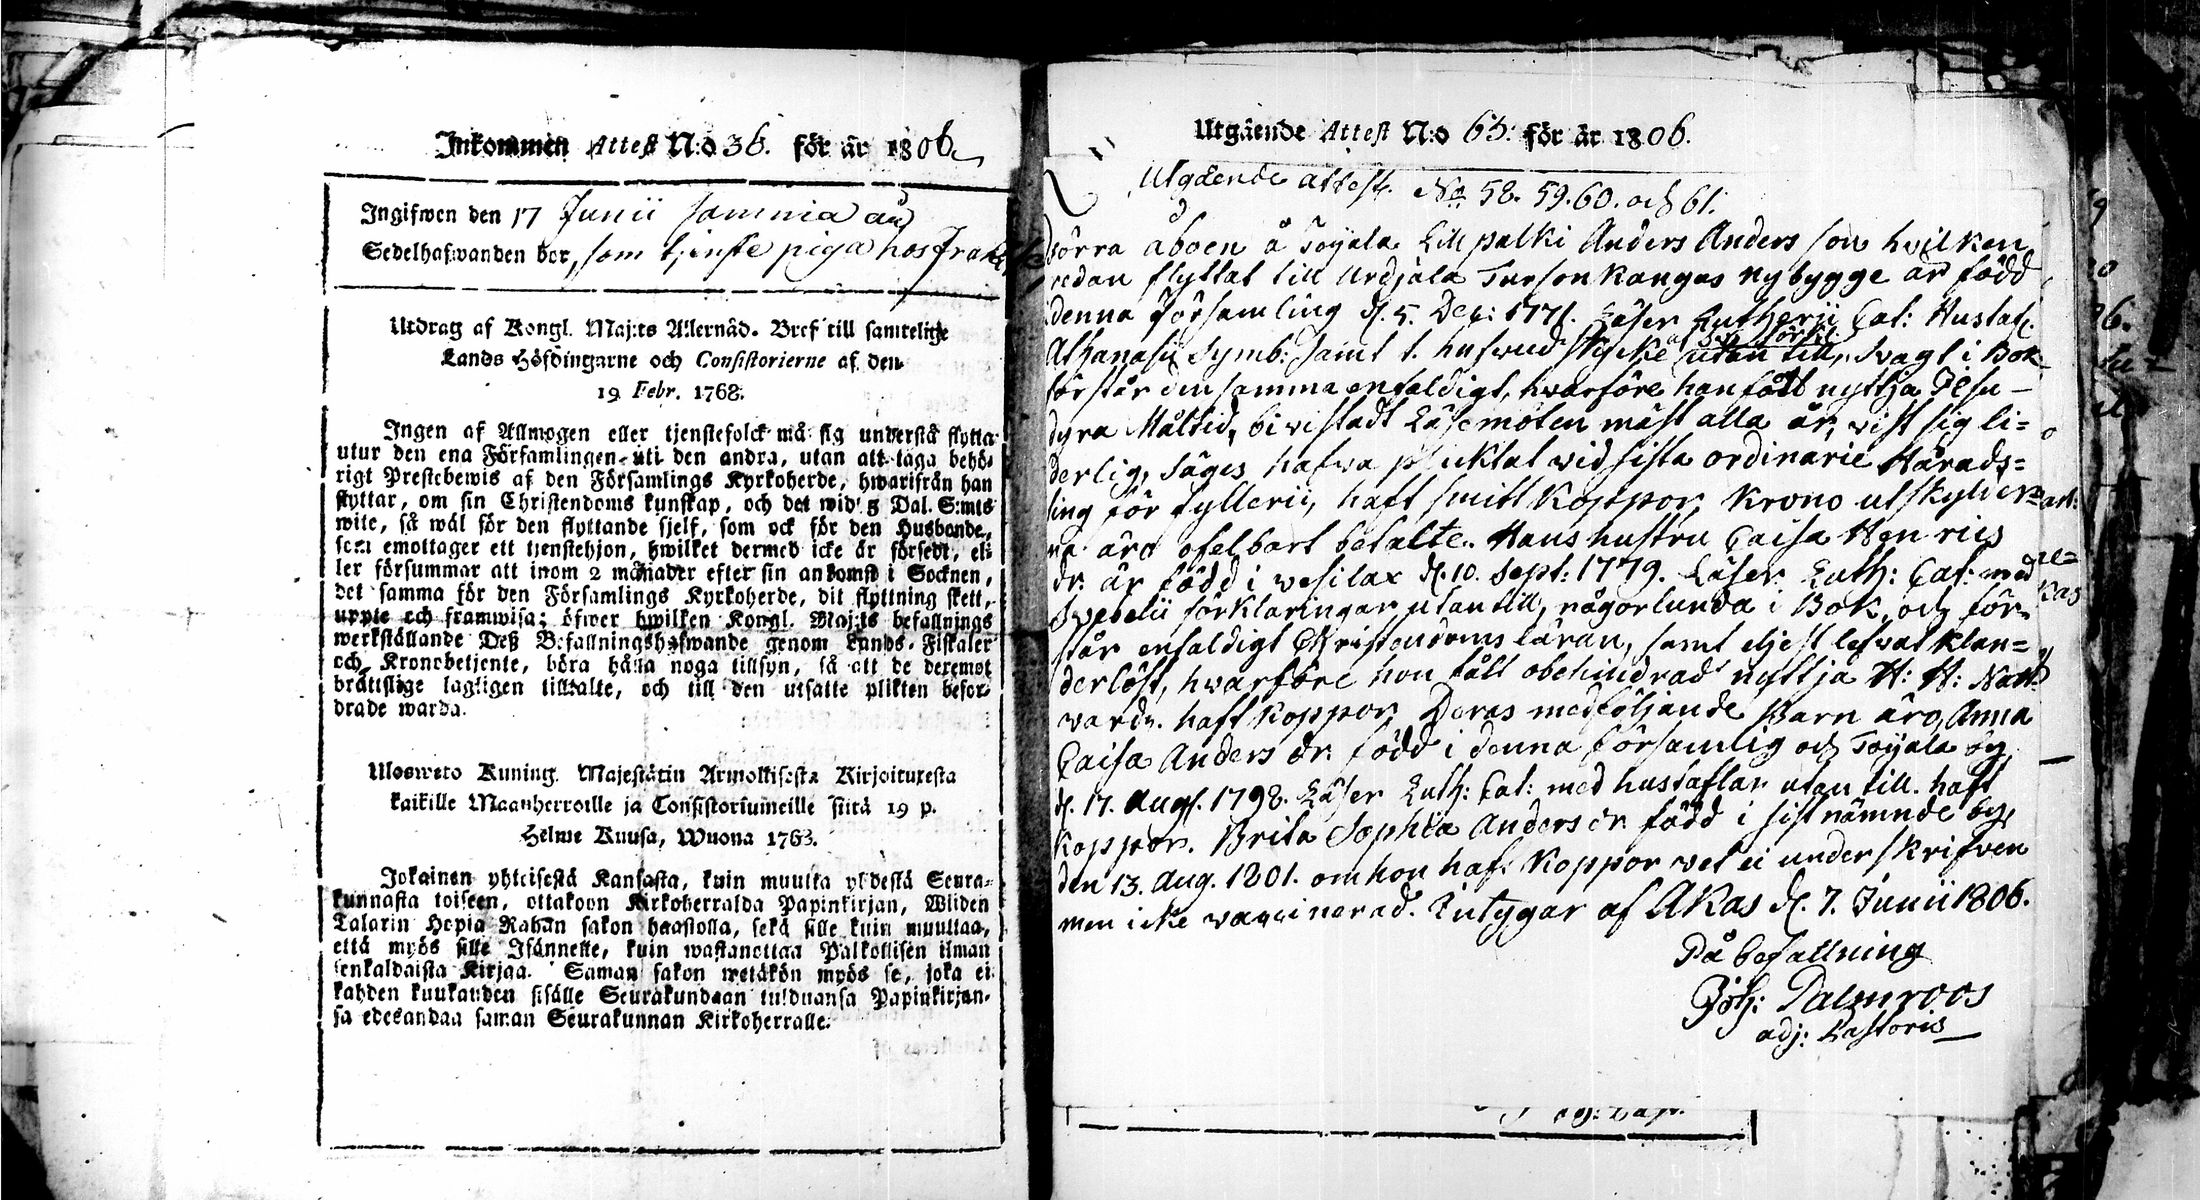 Inkommen Attest N:o 36. för år 1806.
Ingifwen den 17 Junii samma år
Sedelhafwanden bor, som tjenste piga hos
Utdrag af Kongl. Maj:ts Allernåd. Bref till samtelige
Lands Höfdingarne och Consistorierne af den
19 Febr. 1768.
Ingen af Allmogen eller tjenstefolck må sig understå flytta
utur den ena Församlingen uti den andra, utan att taga behö-
rigt Prestebewis af den Församlings Kyrkoherde, hwarifrån han
flyttar, om sin Christendoms kunskap, och det wid 5 Dal. S:mts
wite, så wäl för den flyttande sjelf, som ock för den Husbonde,
som emottager ett tjenstehjon, hwilket dermed icke är försedt, el-
ler försummar att inom 2 månader efter sin ankomst i Socknen,
det samma för den Församlings Kyrkoherde, dit flyttning skett,
uppte och framwisa; öfwer hwilken Kongl. Maj:ts befallnings
werkställande Deß Befallningshafwande genom Lands-Fiskaler
och Kronobetjente, böra hålla noga tillsyn, så att de deremot
bråttslige lagligen tilltalte, och till den utsatte plikten befor-
drade warda.
Ulosweto Kuning. Majestätin Armollisesta Kirjoituxesta
kaikille Maanherroille ja Consistoriumeille siitä 19 p.
Helme Kuusa, Wuona 1768.
Jokainen yhteisestä Kansasta, kuin muutta yhdestä Seura-
kunnasta toiseen, ottakoon Kirkoherralda Papinkirjan, Wiiden
Talarin Hopia Rahan sakon haastolla, sekä sille kuin muuttaa,
että myös sille Isännelle, kuin wastanottaa Palkollisen ilman
senkaldaista Kirjaa. Saman sakon wetäkön myös se, joka ei
kahden kuukauden sisälle Seurakundaan tulduansa Papinkirjan-
sa edesandaa saman Seurakunnan Kirkoherralle.
Utgående Attest N:o 65: för år 1806.
Utgående attest. No 58. 59. 60. och 61.
åboen å Toyala Lillpalki Anders Anders son hvilken
redan flyttat till Urdjala Turson kangas nybygge är född
i denna församling d. 5. Dec: 1771. Läser Lutherii Cat: Hustaf.
Athanasii Symb: samt 1. hufwud stycke af Sv. förkl. utan till, svagt i Bok
förstår den samma enfaldigt, hwarföre han fått nyttja Jesu
dyra Måltid, bivistadt Läsemöten mäst alla år, vist sig li=
derlig, säges hafwa pliktat vid sista ordinarie Härads=
ting för fyllerii, haft smitt Koppor, Krono utskylder=
na äro ofelbart betalte. Hans hustru Caisa Henrics
dr. är född i Vesilax d. 10. Sept: 1779. Läser Luth: Cat: med
Swebelii förklaringar utan till, någorlunda i Bok, och för=
står enfaldigt Christendoms läran, samt eljest lefvat klan=
derlöst, hwarföre hon fått obehindrad nyttja H: H: Natt=
vard. haft Koppor. Deras medföljande Barn äro, Anna
Caisa Anders dr. född i denna församlig och Toyala by
d. 17. Aug. 1798. Läser Luth: Cat: med hustaflan utan till. haft
Koppor. Brita Sophia Anders dr född i sist nämnde by
den 13. Aug. 1801. om hon haf: Koppor vet ei underskrifven
men icke vaccinerad. Intygar af Akas d. 7. Junii 1806.
På befallning
Joh: Palmroos
adj: Pastoris